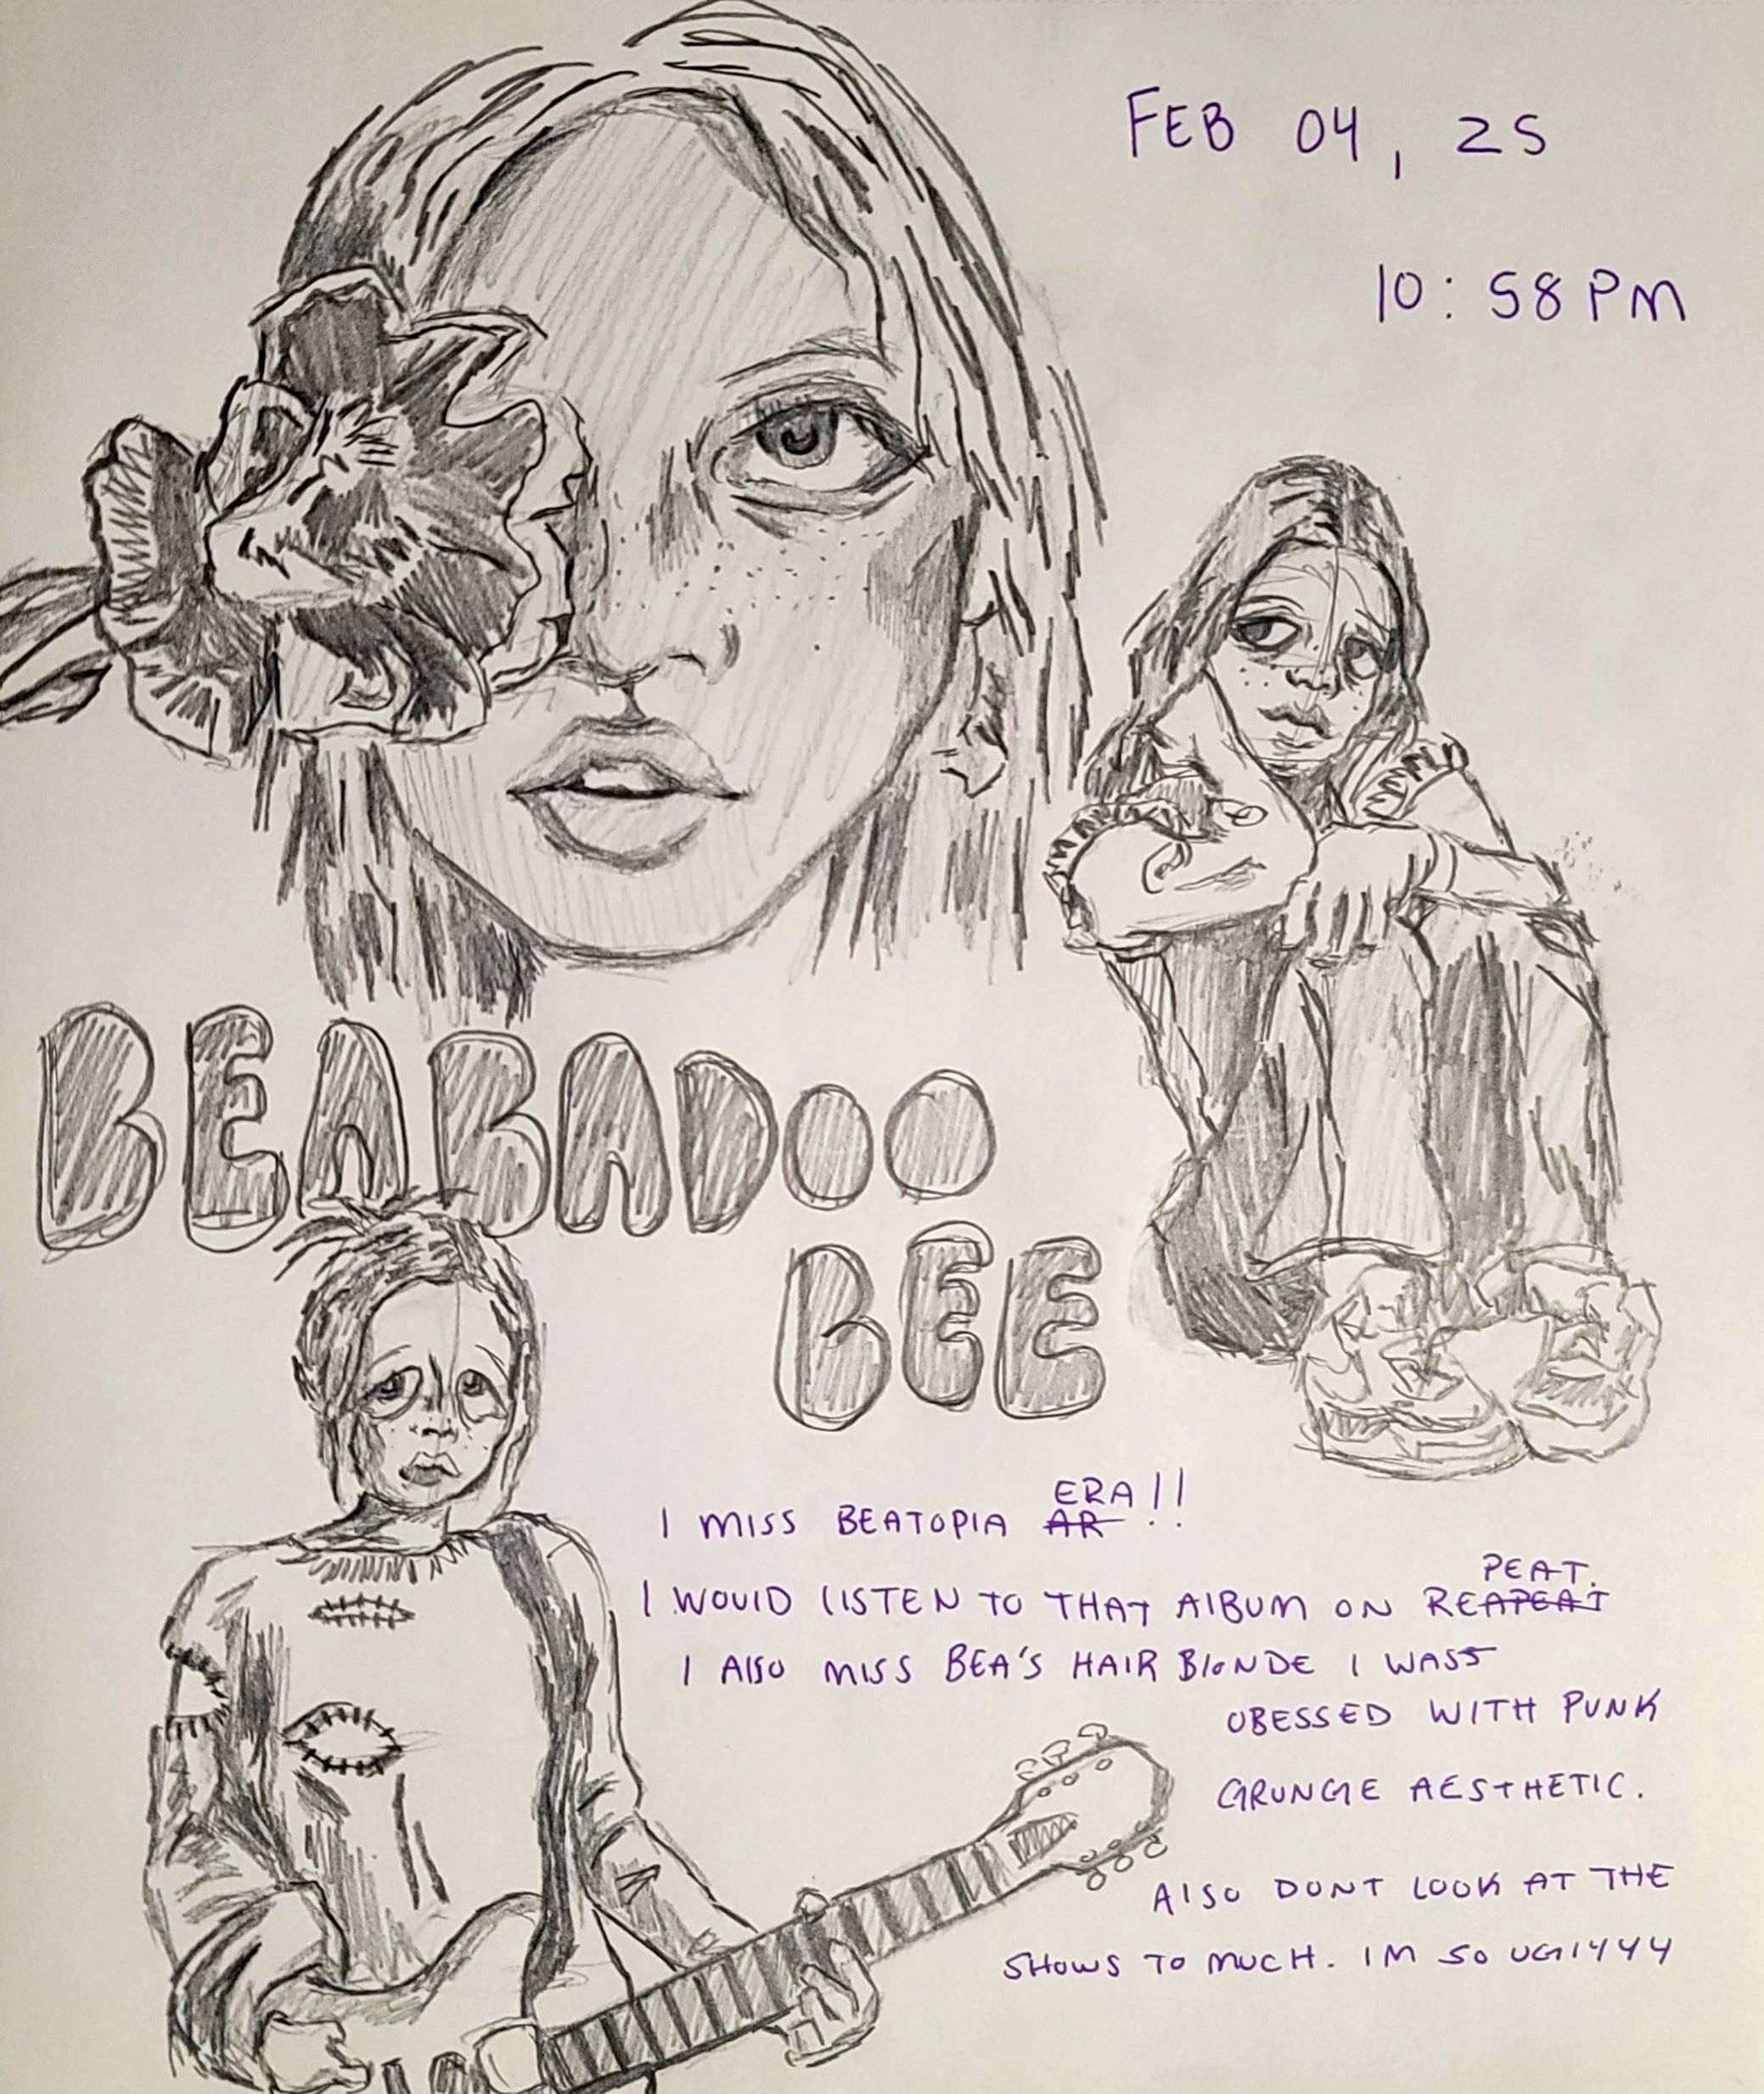 FEB 04, 25
10:58PM
BEABADOO
BEE
I MISS BEATOPIA AR ERA!!
I WOULD LISTEN TO THAT ALBUM ON REAPEAT PEAT.
I ALSO MISS BEA'S HAIR BLONDE I WASS
OBESSED WITH PUNK
GRUNGE AESTHETIC.
ALSO DONT LOOK AT THE
SHOWS TO MUCH. IM SO UGLYYY